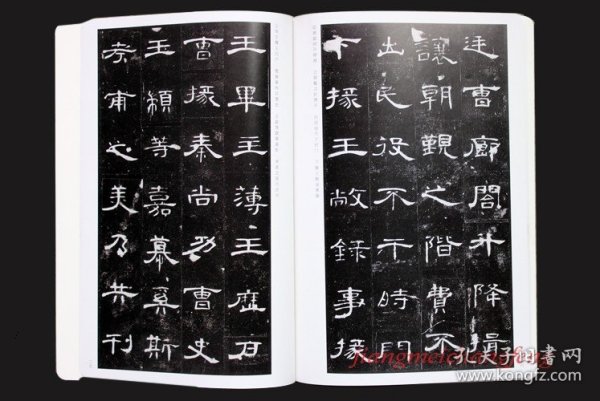 廷曹廊閣升降揖
讓朝覲之階費不
出民役不干時門
下掾王敞錄事掾
王畢主薄王歷戶
曹掾秦尚功曹史
王顓等嘉慕奚斯
考甫之美乃共刊
孔夫子旧书网
www.kongfz.com